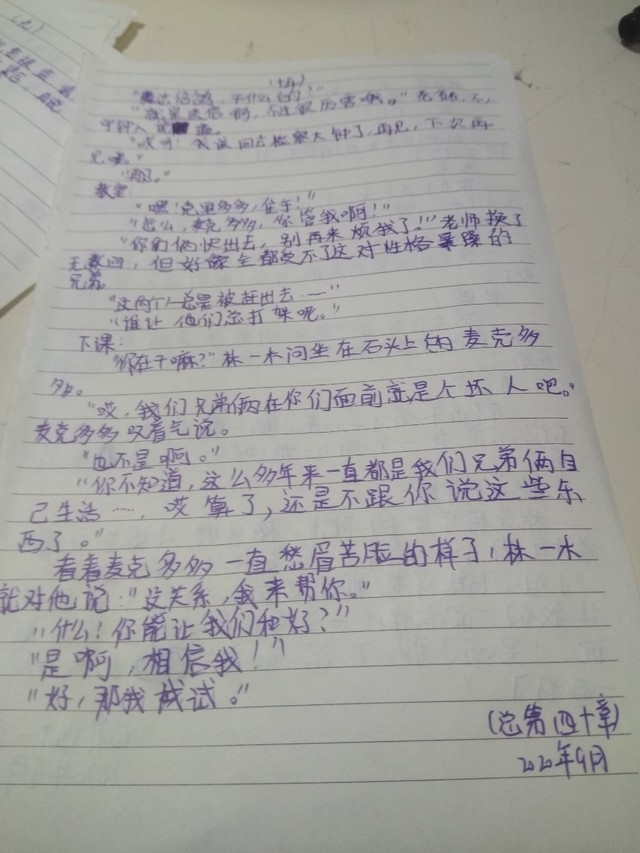 (十)
就是送信的，
我该回去检察大钟了，再见，下次再
见嘿。"
教室
"嘿！克里多多，住手！"
"怎么，麦克多多，你管我啊！"
"你们俩快出去，别再来烦我了！"老师换了
无数四，但好像全都受不了这对性格暴躁的
兄弟
"这两个人总是被赶出去……"
"谁让他们总打架呢。"
下课：
"你在干嘛？"林一木问坐在石头上的麦克多
多。
"哎，我们兄弟俩在你们面前就是个坏人吧。"
麦克多多叹着气说。
"也不是啊。"
"你不知道，这么多年来一直都是我们兄弟俩自
己生活……哎算了，还是不跟你说这些东
西了。"
看着麦克多多一直愁眉苦脸的样子，林一木
就对他说："没关系，我来帮你。"
"什么！你能让我们和好？"
"是啊，相信我！"
"好，那我试试。"
(总第四十章)
2020年9月